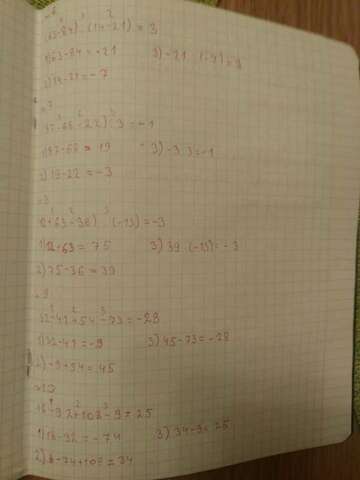 (63-84) : (14-21) = 3
1) 63-84 = -21 3) -21 : (-7) = 3
2) 14-21 = -7
87-68-22) : 3 = -1
1) 87-68 = 19 3) -3 : 3 = -1
2) 19-22 = -3
12+63-36) : (-13) = -3
1) 12+63 = 75 3) 39 : (-13) = -3
2) 75-36 = 39
32-41+54-73 = -28
1) 32-41 = -9 3) 45-73 = -28
2) -9+54 = 45
18-92+108-9 = 25
1) 18-92 = -74 3) 34-9 = 25
2) -74+108 = 34